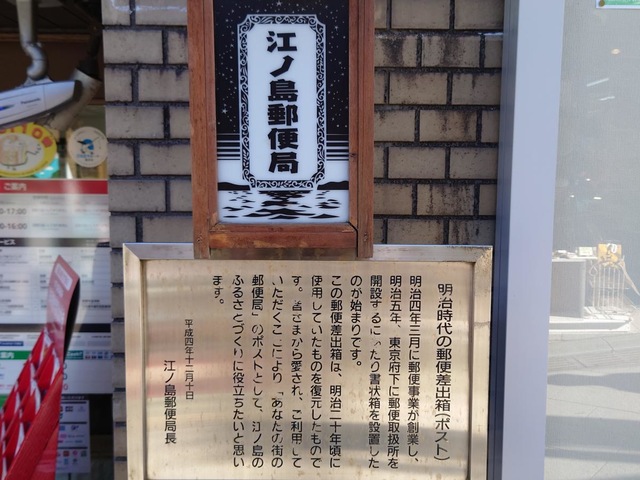 江ノ島郵便局
明治時代の郵便差出箱(ポスト)
明治四年三月に郵便事業が創業し、
明治五年、東京府下に郵便取扱所を
開設するにあたり書状箱を設置した
のが始まりてす。
この郵便差出箱は、明治二十年頃に
使用していたものを復元したもので
す。皆さまから愛され、ご利用して
いただくことにより「あなたの街の
郵便局」のポストとして、江ノ島の
ふるさとづくりに役立ちたいと思い
ます。
平成四年十二月十日
江ノ島郵便局長
Panasonic
ご案内